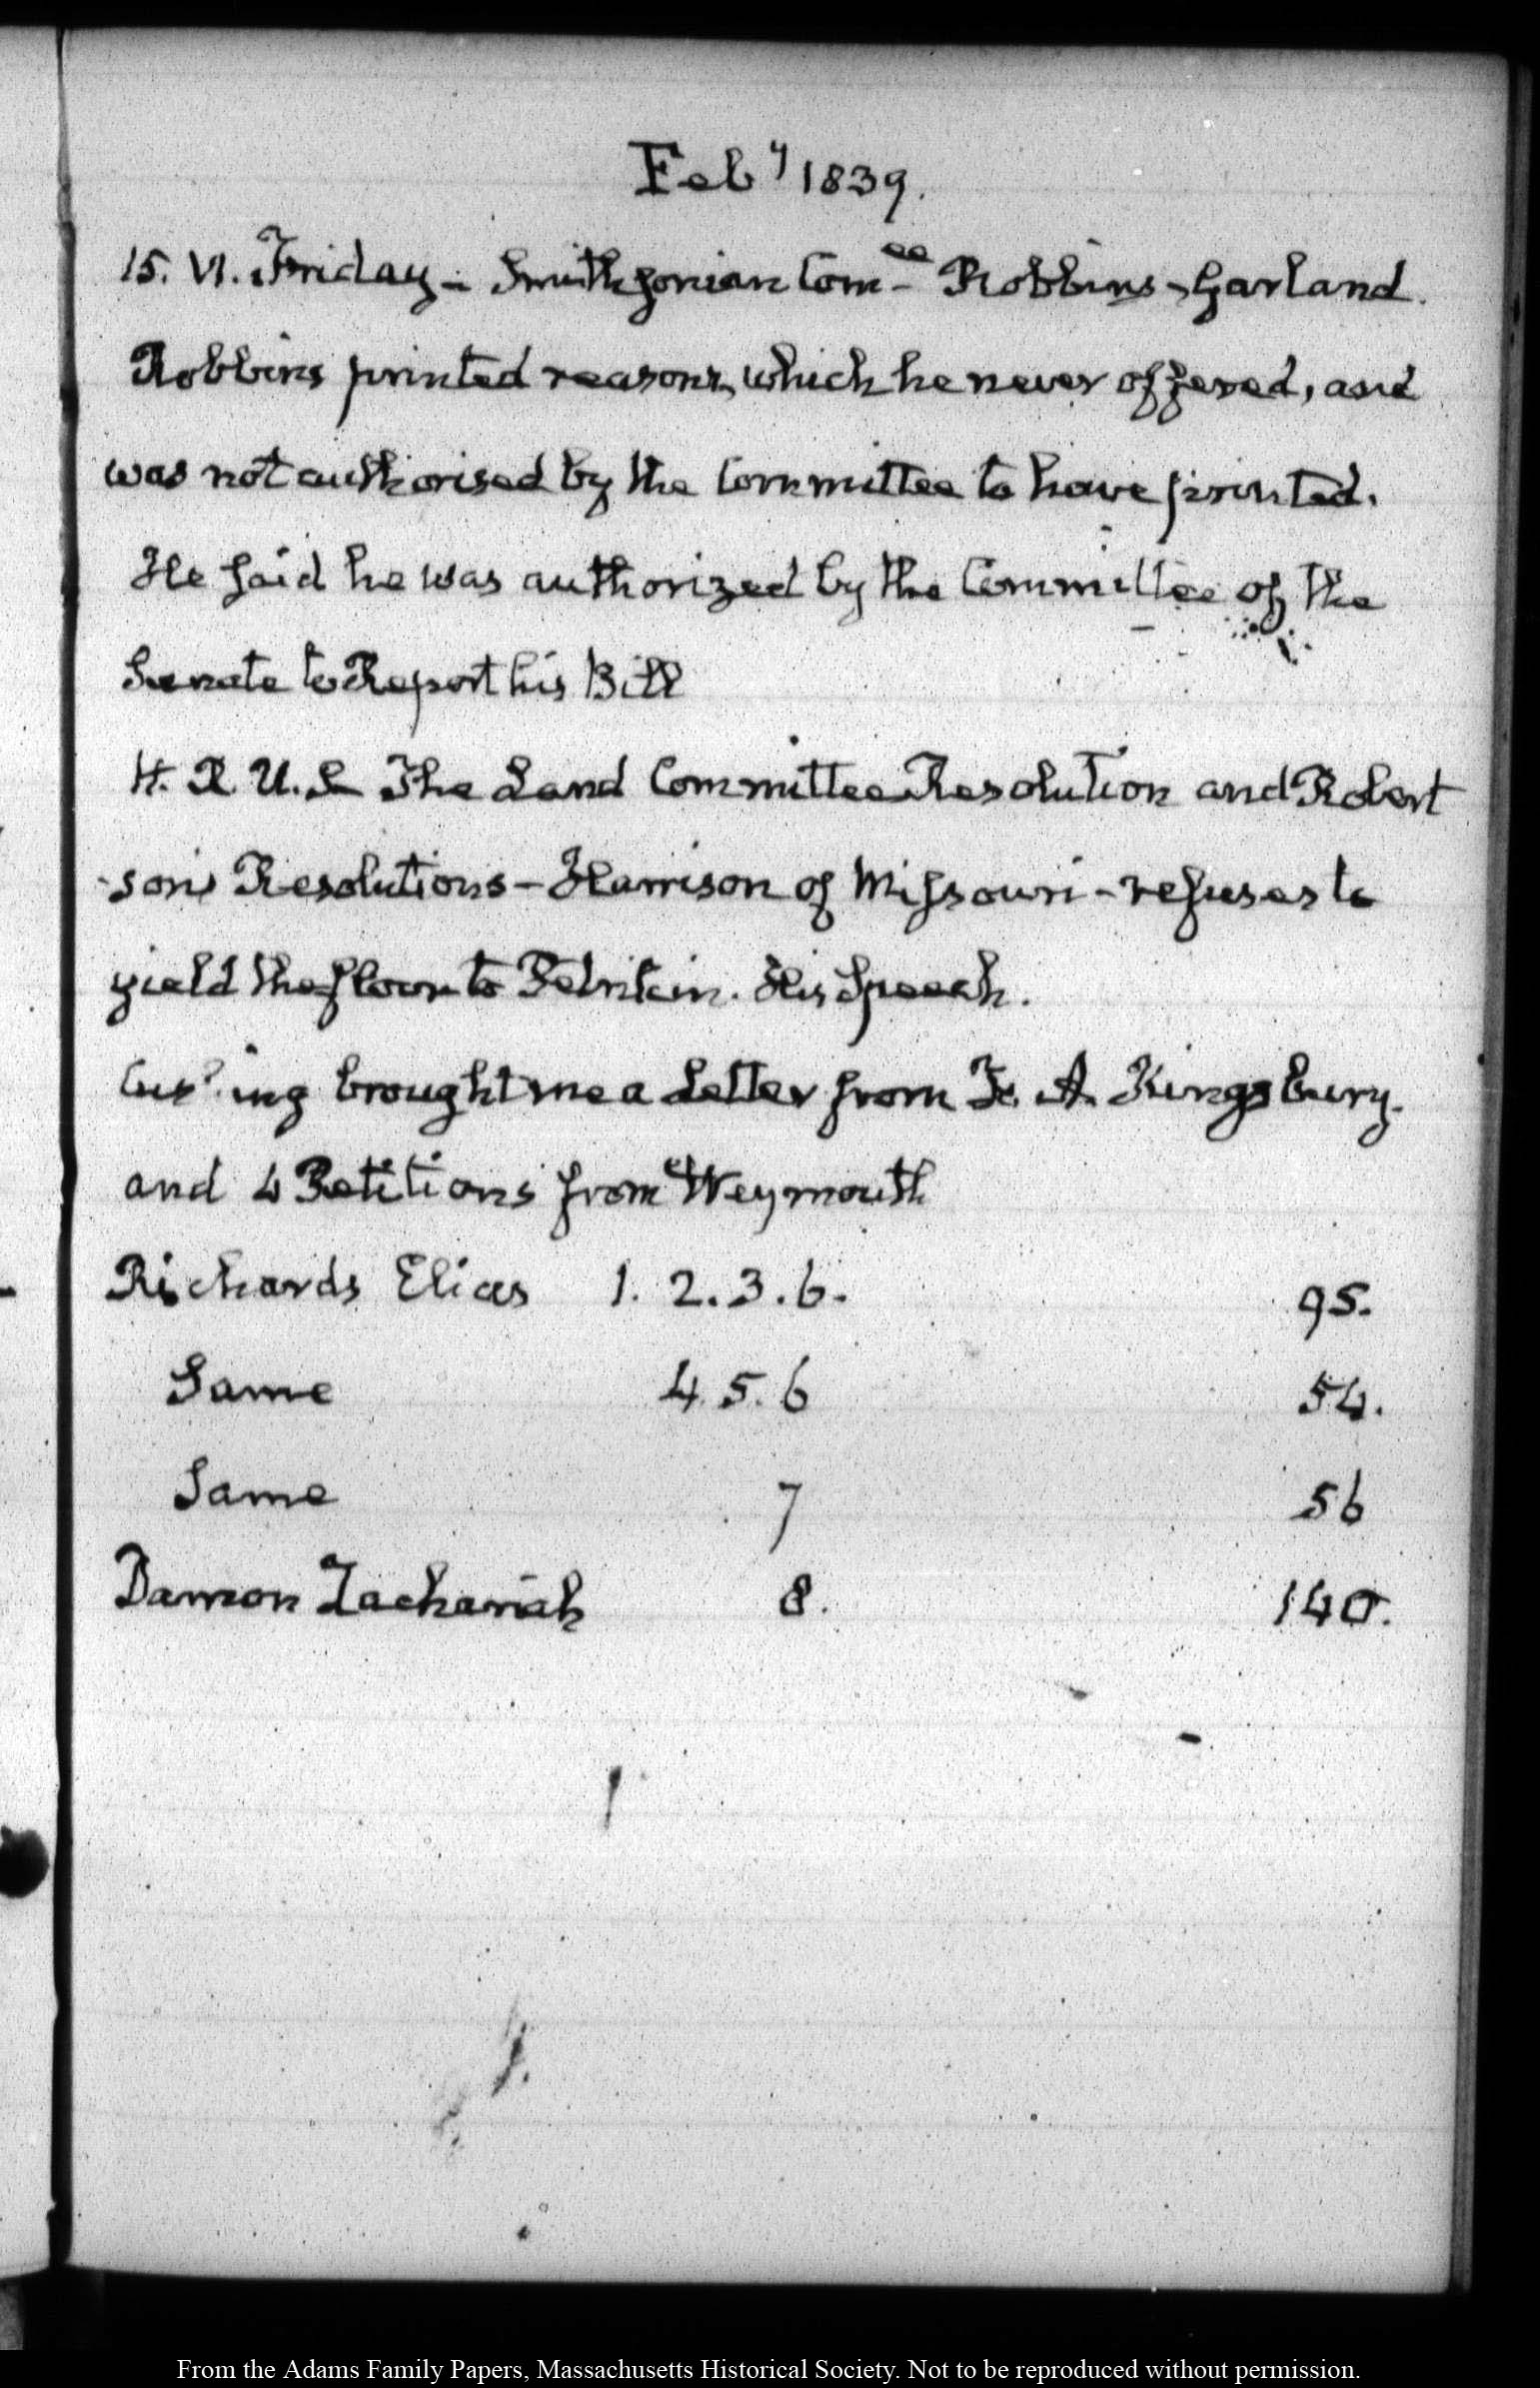 Feby 1839.
15. VI. Friday – Smithsonian Com–ee Robbins – Garland.
Robbins printed reasons, which he never offered, and
was not authorised by the Committee to have printed.
He said he was authorized by the Committee of the
Senate to Report his Bill
H. R. U. S. The Land Committee Resolution and Robert
-son's Resolutions – Harrison of Missouri – refuses to
yield the floor to Petrikin. His Speech.
Cushing brought me a Letter from F. A. Kingsbury.
and 4 Petitions from Weymouth
Richards Elias 1. 2. 3. 6. 95.
Same 4. 5. 6 54.
Same 7 56
Damon Zachariah 8. 140.
From the Adams Family Papers, Massachusetts Historical Society. Not to be reproduced without permission.